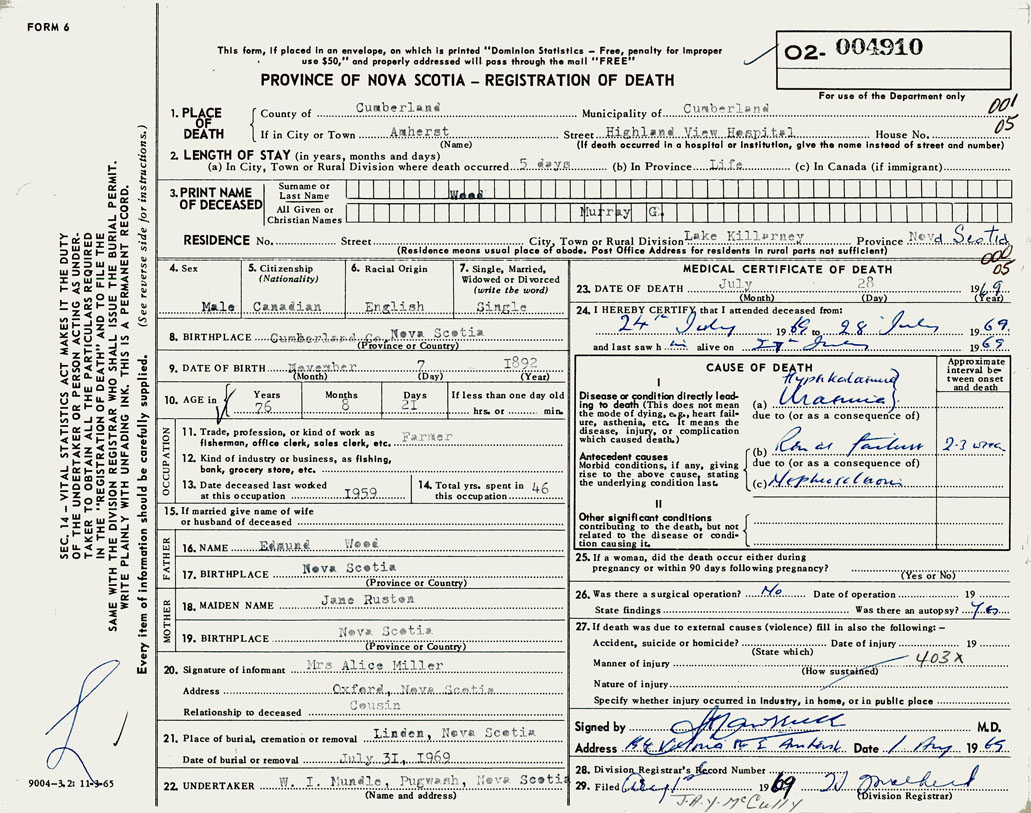 FORM 6
This form, if placed in an envelope, on which is printed "Dominion Statistics – Free, penalty for improper
use $50," and properly addressed will pass through the mail "FREE"
PROVINCE OF NOVA SCOTIA – REGISTRATION OF DEATH
02- 004910
For use of the Department only
001
05
1. PLACE OF DEATH
County of Cumberland Municipality of Cumberland
If in City or Town Amherst Street Highland View Hospital House No.
(Name) (If death occurred in a hospital or institution, give the name instead of street and number)
2. LENGTH OF STAY (in years, months and days)
(a) In City, Town or Rural Division where death occurred 5 days (b) In Province Life (c) In Canada (if immigrant)
3. PRINT NAME OF DECEASED
Surname or Last Name Wood
All Given or Christian Names Murray G.
RESIDENCE No. Street City, Town or Rural Division Lake Killarney Province Nova Scotia
(Residence means usual place of abode. Post Office Address for residents in rural parts not sufficient)
000
05
4. Sex Male
5. Citizenship (Nationality) Canadian
6. Racial Origin English
7. Single, Married, Widowed or Divorced (write the word) Single
8. BIRTHPLACE Cumberland Co, Nova Scotia
(Province or Country)
9. DATE OF BIRTH November 7 1892
(Month) (Day) (Year)
10. AGE in Years 76 Months 8 Days 21 If less than one day old hrs. or min.
OCCUPATION
11. Trade, profession, or kind of work as fisherman, office clerk, sales clerk, etc. Farmer
12. Kind of industry or business, as fishing, bank, grocery store, etc.
13. Date deceased last worked at this occupation 1959
14. Total yrs. spent in this occupation 46
15. If married give name of wife or husband of deceased
FATHER
16. NAME Edmund Wood
17. BIRTHPLACE Nova Scotia
(Province or Country)
MOTHER
18. MAIDEN NAME Jane Ruston
19. BIRTHPLACE Nova Scotia
(Province or Country)
20. Signature of informant Mrs Alice Miller
Address Oxford, Nova Scotia
Relationship to deceased Cousin
21. Place of burial, cremation or removal Linden, Nova Scotia
Date of burial or removal July 31, 1969
22. UNDERTAKER W. I. Mundle, Pugwash, Nova Scotia
(Name and address)
MEDICAL CERTIFICATE OF DEATH
23. DATE OF DEATH July 28 1969
(Month) (Day) (Year)
24. I HEREBY CERTIFY that I attended deceased from:
24th July 1969 to 28 July 1969
and last saw him alive on July 1969
CAUSE OF DEATH
Approximate interval between onset and death
I
Disease or condition directly leading to death (This does not mean the mode of dying, e.g., heart failure, asthenia, etc. It means the disease, injury, or complication which caused death.)
(a) Uraemia
due to (or as a consequence of)
Antecedent causes
Morbid conditions, if any, giving rise to the above cause, stating the underlying condition last.
(b) Renal Failure 2-3 weeks
due to (or as a consequence of)
(c) Nephrosclerosis
II
Other significant conditions contributing to the death, but not related to the disease or condition causing it.
25. If a woman, did the death occur either during pregnancy or within 90 days following pregnancy?
(Yes or No)
26. Was there a surgical operation? No Date of operation 19
State findings Was there an autopsy? Yes
27. If death was due to external causes (violence) fill in also the following: –
Accident, suicide or homicide? Date of injury 19
(State which)
Manner of injury 403X
(How sustained)
Nature of injury
Specify whether injury occurred in industry, in home, or in public place
Signed by M.D.
Address Victoria St E Amherst Date 1 Aug 1969
28. Division Registrar's Record Number
29. Filed Aug 1st 1969
(Division Registrar)
J.A.Y. McCully
SEC. 14 – VITAL STATISTICS ACT MAKES IT THE DUTY
OF THE UNDERTAKER OR PERSON ACTING AS UNDER-
TAKER TO OBTAIN ALL THE PARTICULARS REQUIRED
IN THE "REGISTRATION OF DEATH" AND TO FILE THE
SAME WITH THE DIVISION REGISTRAR WHO SHALL ISSUE THE BURIAL PERMIT.
WRITE PLAINLY WITH UNFADING INK. THIS IS A PERMANENT RECORD.
Every item of information should be carefully supplied. (See reverse side for instructions.)
9004-3.2: 11-3-65